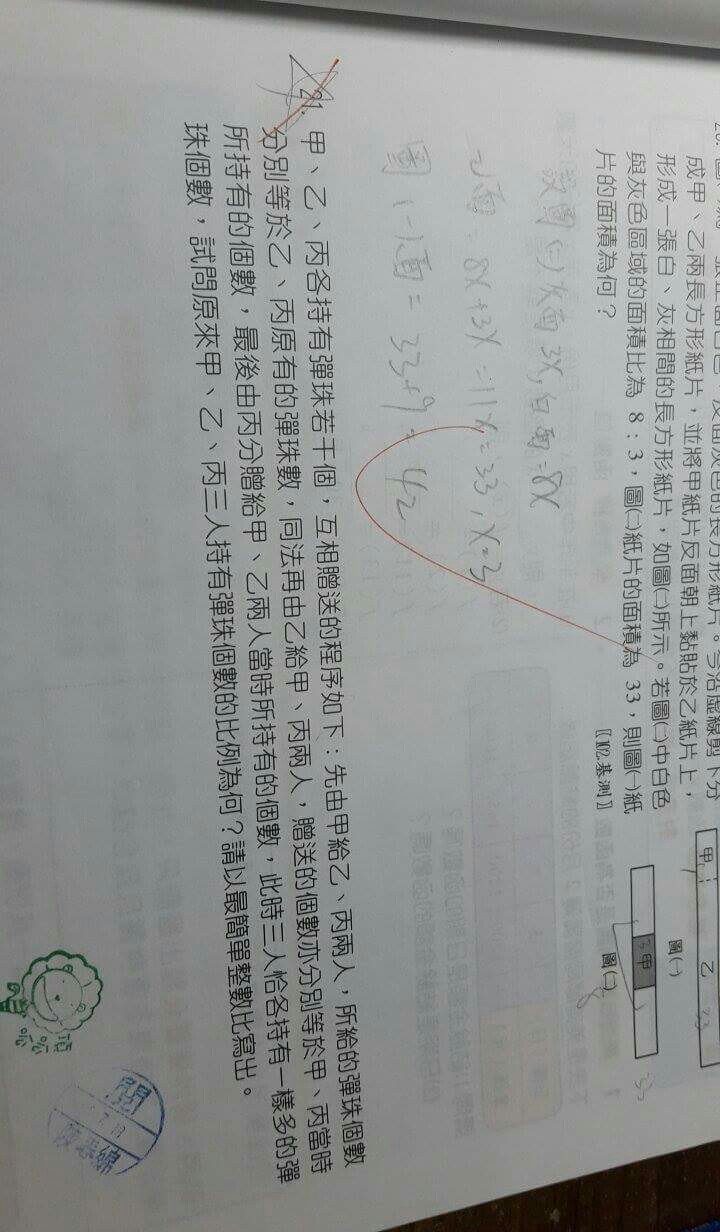 成甲、乙兩長方形紙片，並將甲紙片反面朝上黏貼於乙紙片上，
形成一張白、灰相間的長方形紙片，如圖㈡所示。若圖㈡中白色
與灰色區域的面積比為 8：3，圖㈡紙片的面積為 33，則圖㈠紙
片的面積為何？
〚102.基測〛
甲
乙
33
圖㈠
甲
圖㈡
8
33
設圖(二)灰面3X,白面=8X
乙面=8X+3X=11X=33,X=3
圖(一)面=33+9=42
21. 甲、乙、丙各持有彈珠若干個，互相贈送的程序如下：先由甲給乙、丙兩人，所給的彈珠個數
分別等於乙、丙原有的彈珠數，同法再由乙給甲、丙兩人，贈送的個數亦分別等於甲、丙當時
所持有的個數，最後由丙分贈給甲、乙兩人當時所持有的個數，此時三人恰各持有一樣多的彈
珠個數，試問原來甲、乙、丙三人持有彈珠個數的比例為何？請以最簡單整數比寫出。
閱